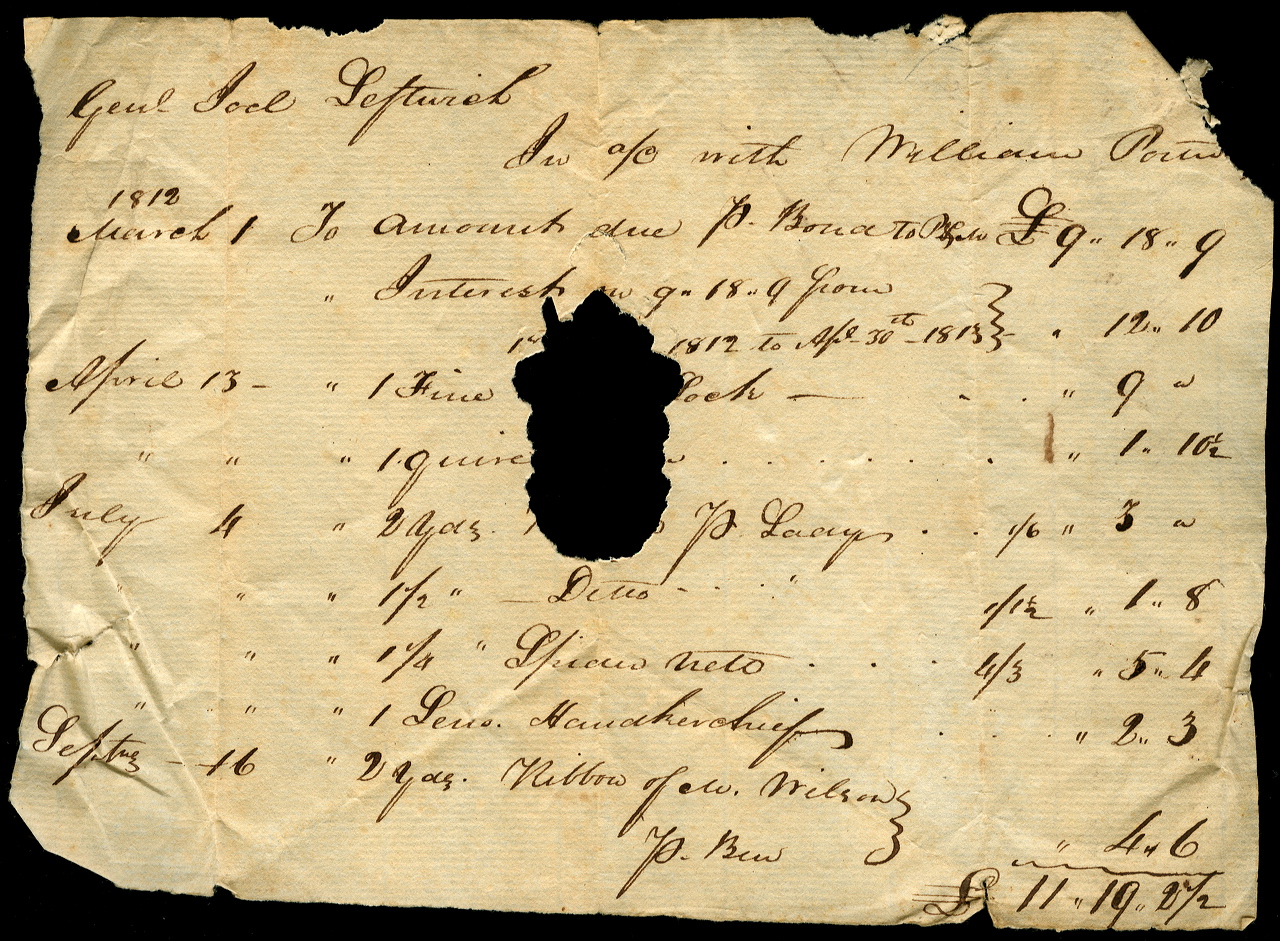 Genl Joel Leftwich
In a/c with William
1812
March 1 To amount due P. Bond to £ 9 " 18 " 9
" Interest on 9 " 18 " 9 from
1812 to Apl 30th 1813 } - " 12 " 10
April 13 - " 1 Fine lock — . . " 9 "
" " " 1 quire . . . . . . . " 1 " 10½
July 4 " 2 Yds. P. Lady . . 1/6 " 3 "
" " " 1½ " — Ditto - . . " 1/1½ " 1 " 8
" " " 1¼ " Spider nett . . . 4/3 " 5 " 4
" " " 1 Leno. Handkerchief . . . " 2 " 3
Septbr - 16 " 2 Yds. Ribbon of M. Wilson }
P. Ben " 4 " 6
£ 11 " 19 " 2½